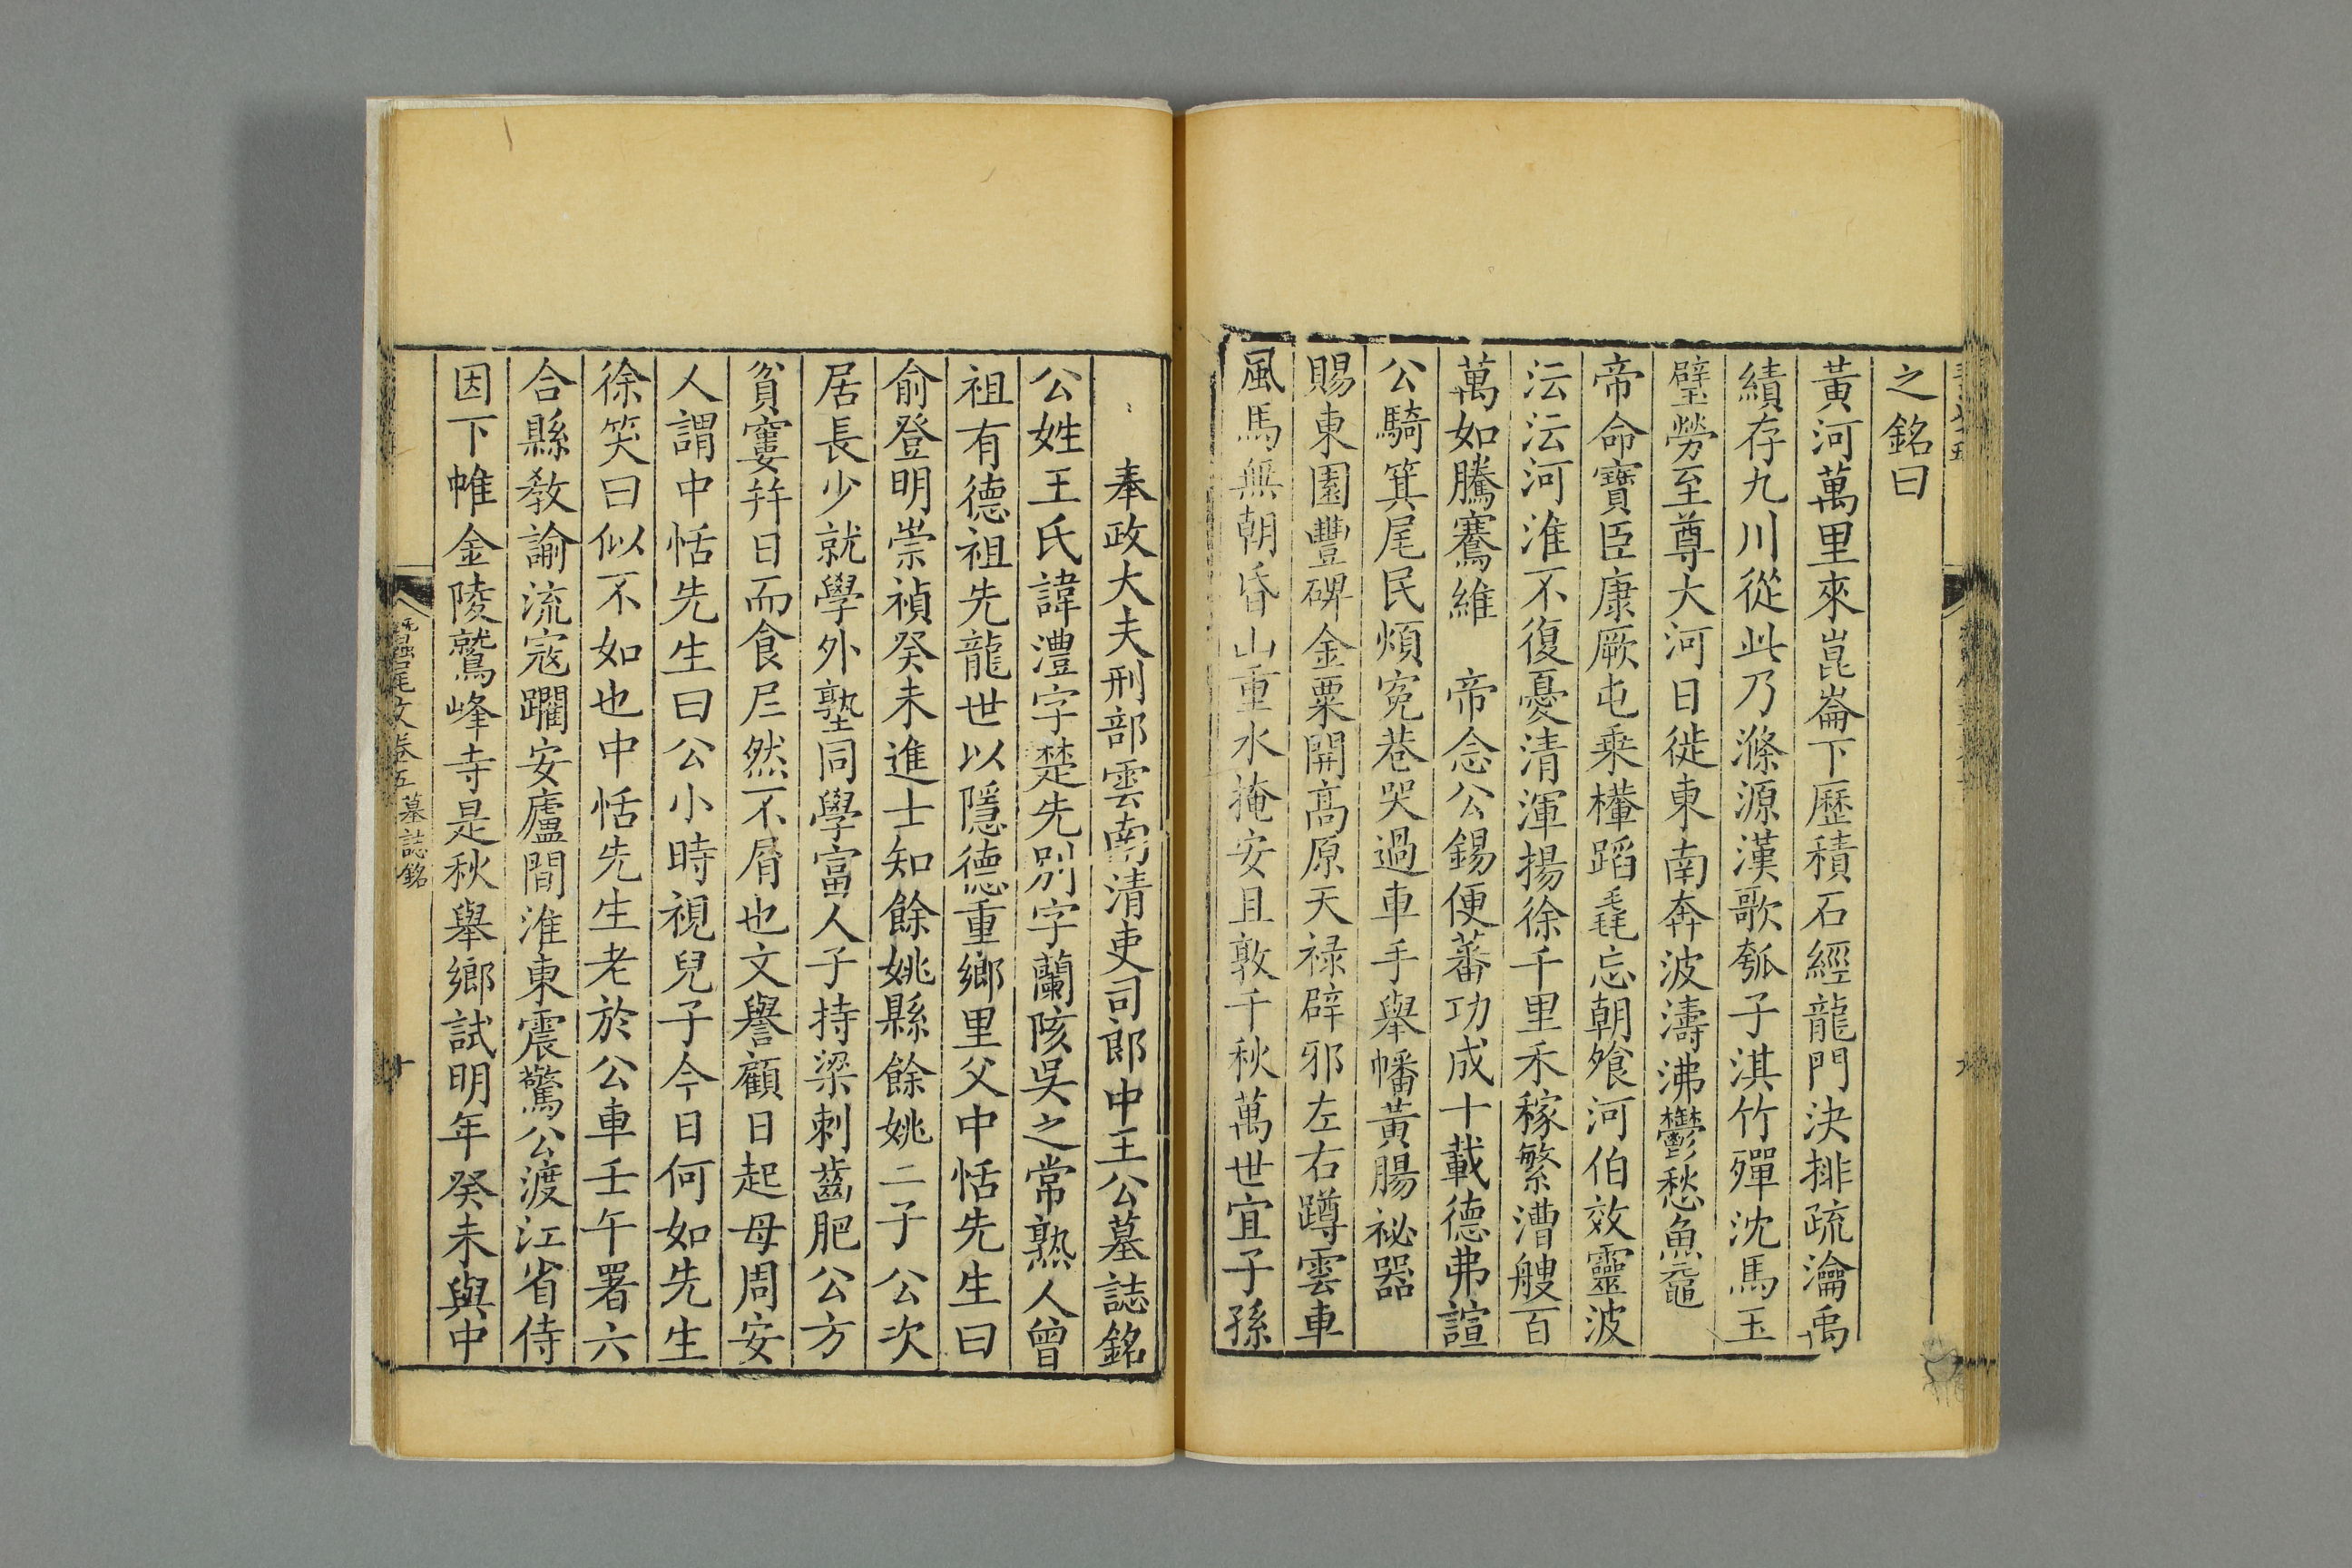 之銘曰
黃河萬里來崑崙下歷積石經龍門決排疏瀹禹
績存九川從此乃滌源漢歌瓠子淇竹殫沈馬玉
璧勞至尊大河日徙東南奔波濤沸鬱愁魚黿
帝命寶臣康厥屯乘橇蹈毳忘朝飧河伯效靈波
沄沄河淮不復憂清渾揚徐千里禾稼繁漕艘百
萬如騰騫維　帝念公錫便蕃功成十載德弗諠
公騎箕尾民煩冤巷哭過車手舉幡黃腸祕器
賜東園豐碑金粟開高原天祿辟邪左右蹲雲車
風馬無朝昏山重水掩安且敦千秋萬世宜子孫
奉政大夫刑部雲南清吏司郎中王公墓誌銘
公姓王氏諱澧字楚先別字蘭陔吳之常熟人曾
祖有德祖先龍世以隱德重鄉里父中恬先生曰
俞登明崇禎癸未進士知餘姚縣餘姚二子公次
居長少就學外塾同學富人子持粱刺齒肥公方
貧窶幷日而食𡰥然不屑也文譽顧日起母周安
人謂中恬先生曰公小時視兒子今日何如先生
徐笑曰似不如也中恬先生老於公車壬午署六
合縣敎諭流寇躙安廬間淮東震驚公渡江省侍
因下帷金陵鷲峰寺是秋舉鄉試明年癸未與中
蠶尾文卷五 墓誌銘
十